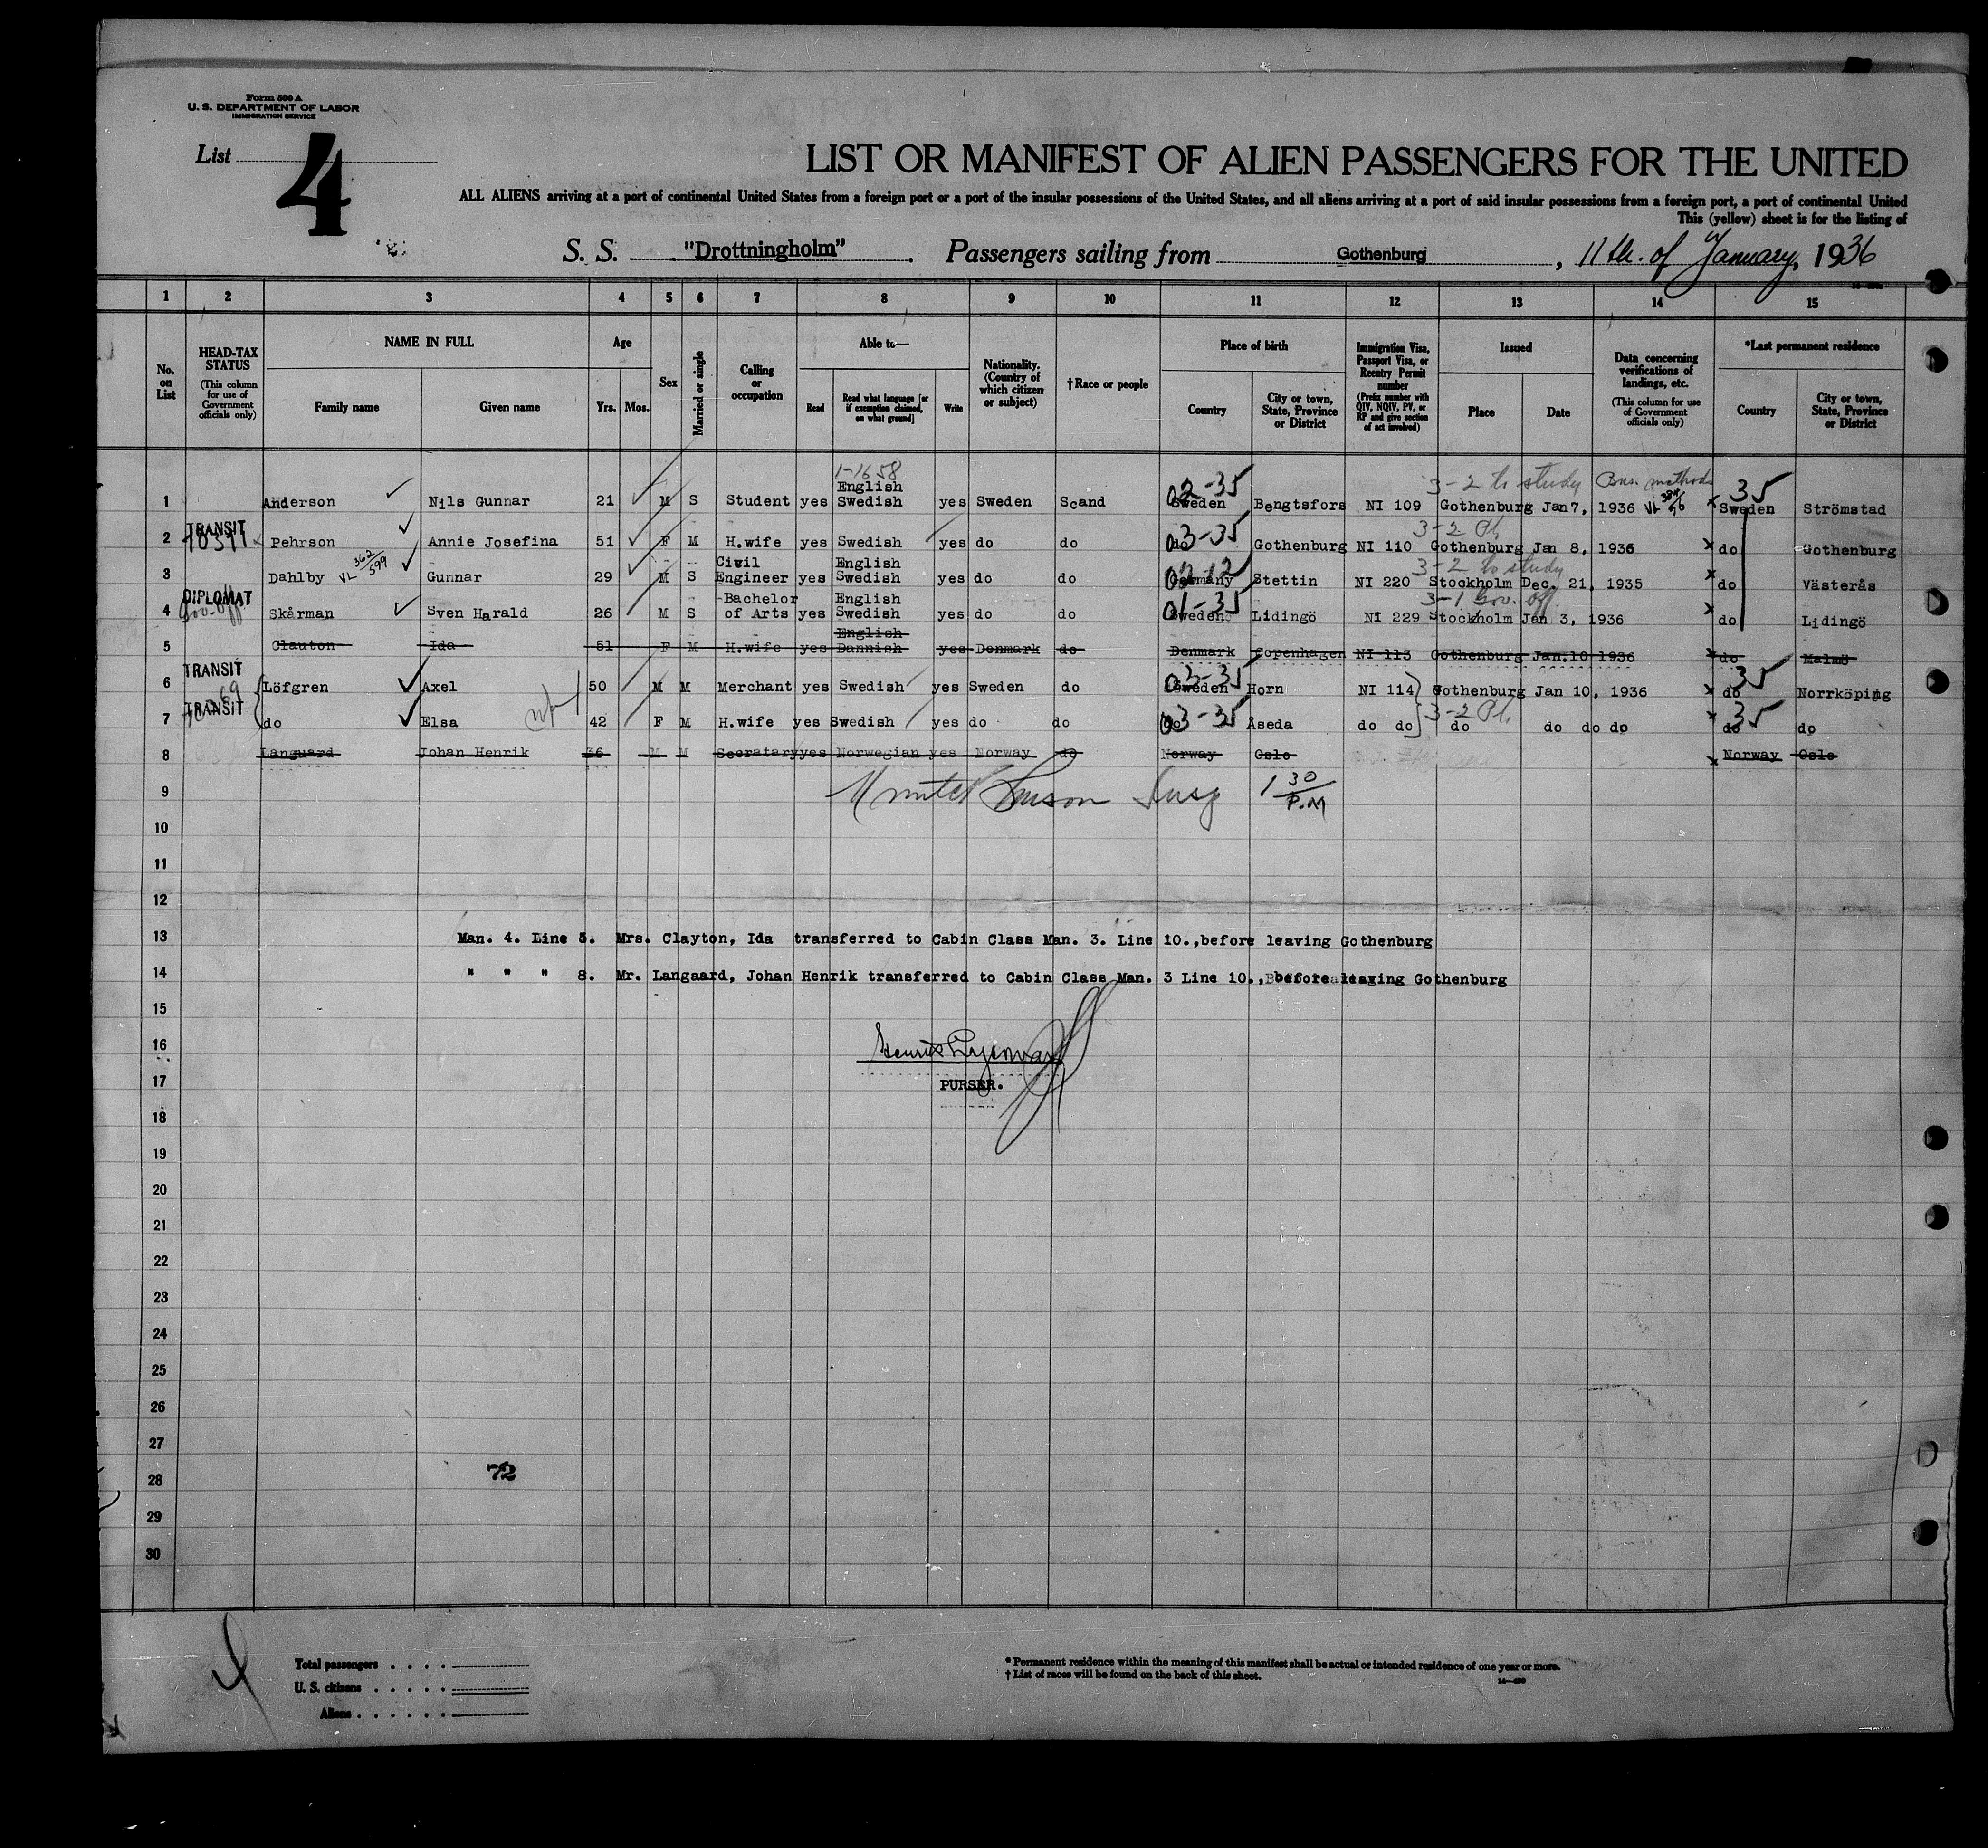 Form 500 A
U. S. DEPARTMENT OF LABOR
IMMIGRATION SERVICE
List 4
LIST OR MANIFEST OF ALIEN PASSENGERS FOR THE UNITED
ALL ALIENS arriving at a port of continental United States from a foreign port or a port of the insular possessions of the United States, and all aliens arriving at a port of said insular possessions from a foreign port, a port of continental United
This (yellow) sheet is for the listing of
S. S. "Drottningholm". Passengers sailing from Gothenburg, 11th. of January, 1936
1 2 3 4 5 6 7 8 9 10 11 12 13 14 15
No. on List
HEAD-TAX STATUS (This column for use of Government officials only)
NAME IN FULL
Family name Given name
Age
Yrs. Mos.
Sex
Married or single
Calling or occupation
Able to—
Read Read what language [or if exemption claimed, on what ground] Write
Nationality. (Country of which citizen or subject)
†Race or people
Place of birth
Country City or town, State, Province or District
Immigration Visa, Passport Visa, or Reentry Permit number (Prefix number with QIV, NQIV, PV, or RP and give section of act involved)
Issued
Place Date
Data concerning verifications of landings, etc. (This column for use of Government officials only)
*Last permanent residence
Country City or town, State, Province or District
1-1658 3-2 to study Bus. methods
English 02-35 35
1 Anderson Nils Gunnar 21 M S Student yes Swedish yes Sweden Scand Sweden Bengtsfors NI 109 Gothenburg Jan 7, 1936 x Sweden Strömstad
TRANSIT 03-35 3-2 Pl.
2 Pehrson Annie Josefina 51 F M H.wife yes Swedish yes do do do Gothenburg NI 110 Gothenburg Jan 8, 1936 x do Gothenburg
VL 362/599 Civil English 3-2 to study
3 Dahlby Gunnar 29 M S Engineer yes Swedish yes do do Germany Stettin NI 220 Stockholm Dec. 21, 1935 x do Västerås
DIPLOMAT Gov. off -Bachelor English 01-35 3-1 Gov. off.
4 Skårman Sven Harald 26 M S of Arts yes Swedish yes do do Sweden Lidingö NI 229 Stockholm Jan 3, 1936 x do Lidingö
English
5 Clauton Ida 51 F M H.wife yes Dannish yes Denmark do Denmark Copenhagen NI 113 Gothenburg Jan.10 1936 x do Malmö
TRANSIT 03-35 35
6 Löfgren Axel 50 M M Merchant yes Swedish yes Sweden do Sweden Horn NI 114 Gothenburg Jan 10, 1936 x do Norrköping
TRANSIT 03-35 3-2 Pl. 35
7 do Elsa 42 F M H.wife yes Swedish yes do do do Åseda do do do do do do x do do
8 Languard Johan Henrik 36 M M Secratary yes Norwegian yes Norway do Norway Oslo x Norway Oslo
9 1 30/P.M
10
11
12
13 Man. 4. Line 5. Mrs. Clayton, Ida transferred to Cabin Class Man. 3. Line 10.,before leaving Gothenburg
14 " " " 8. Mr. Langaard, Johan Henrik transferred to Cabin Class Man. 3 Line 10., before leaving Gothenburg
15
16
17 PURSER.
18
19
20
21
22
23
24
25
26
27
28 72
29
30
Total passengers . . . .
U. S. citizens . . . . .
Aliens . . . . . .
* Permanent residence within the meaning of this manifest shall be actual or intended residence of one year or more.
† List of races will be found on the back of this sheet.